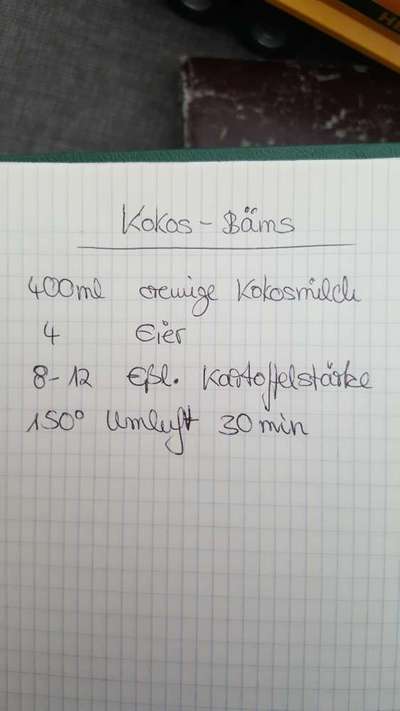 Kokos - Bäms
400ml cremige Kokosmilch
4 Eier
8-12 Eßl. Kartoffelstärke
150° Umluft 30 min